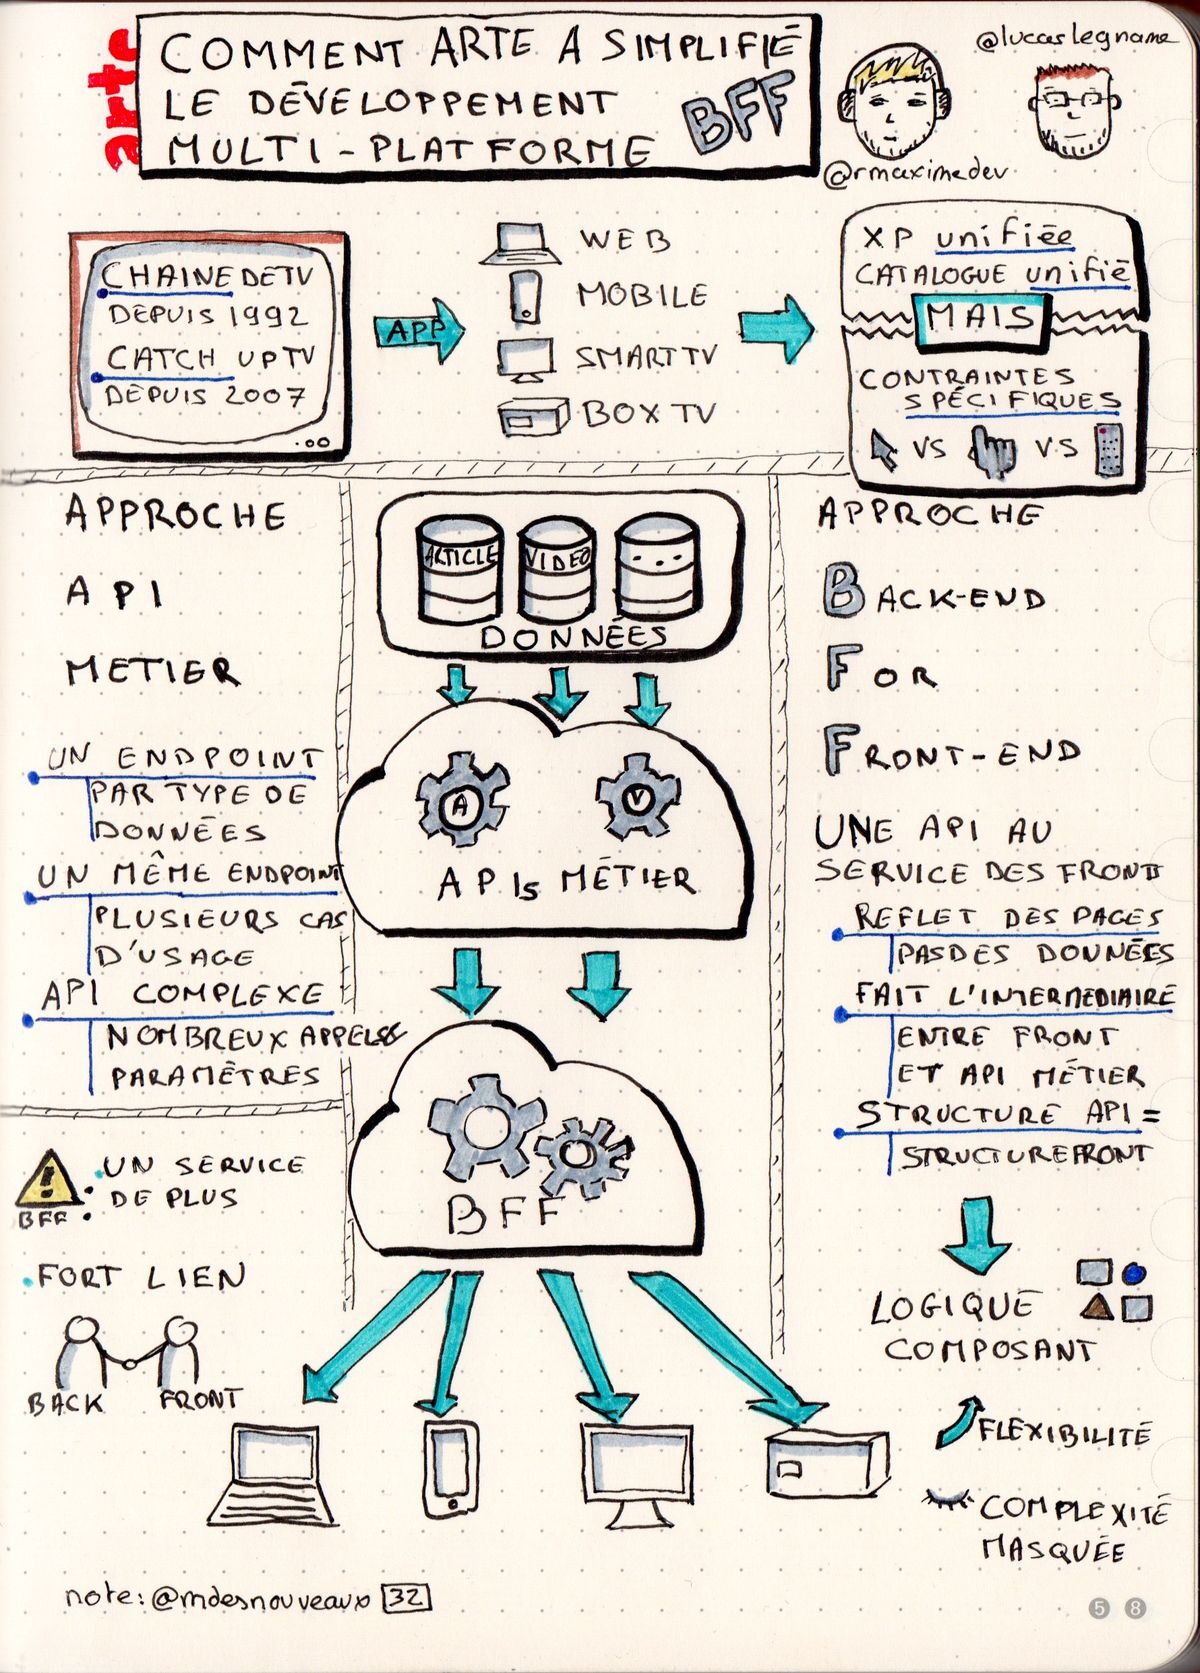 arte
COMMENT ARTE A SIMPLIFIÉ
LE DÉVELOPPEMENT
MULTI-PLATFORME
BFF
@lucaslegname
@rmaximedev
CHAINE DE TV
DEPUIS 1992
CATCH UP TV
DEPUIS 2007
APP
WEB
MOBILE
SMART TV
BOX TV
XP unifiée
CATALOGUE unifié
MAIS
CONTRAINTES
SPÉCIFIQUES
VS VS
APPROCHE
API
METIER
UN ENDPOINT
PAR TYPE DE
DONNÉES
UN MÊME ENDPOINT
PLUSIEURS CAS
D'USAGE
API COMPLEXE
NOMBREUX APPELS &
PARAMÈTRES
! BFF :
UN SERVICE
DE PLUS
FORT LIEN
BACK FRONT
ARTICLE VIDEO ...
DONNÉES
A V
APIs MÉTIER
BFF
APPROCHE
BACK-END
FOR
FRONT-END
UNE API AU
SERVICE DES FRONT
REFLET DES PAGES
PAS DES DONNÉES
FAIT L'INTERMEDIAIRE
ENTRE FRONT
ET API MÉTIER
STRUCTURE API =
STRUCTURE FRONT
LOGIQUE
COMPOSANT
FLEXIBILITÉ
COMPLEXITÉ
MASQUÉE
note: @mdesnouveaux 32
5 8